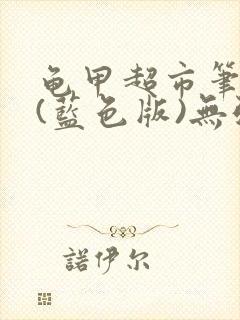 龟甲超市筆
(藍色版)無
諾伊尔